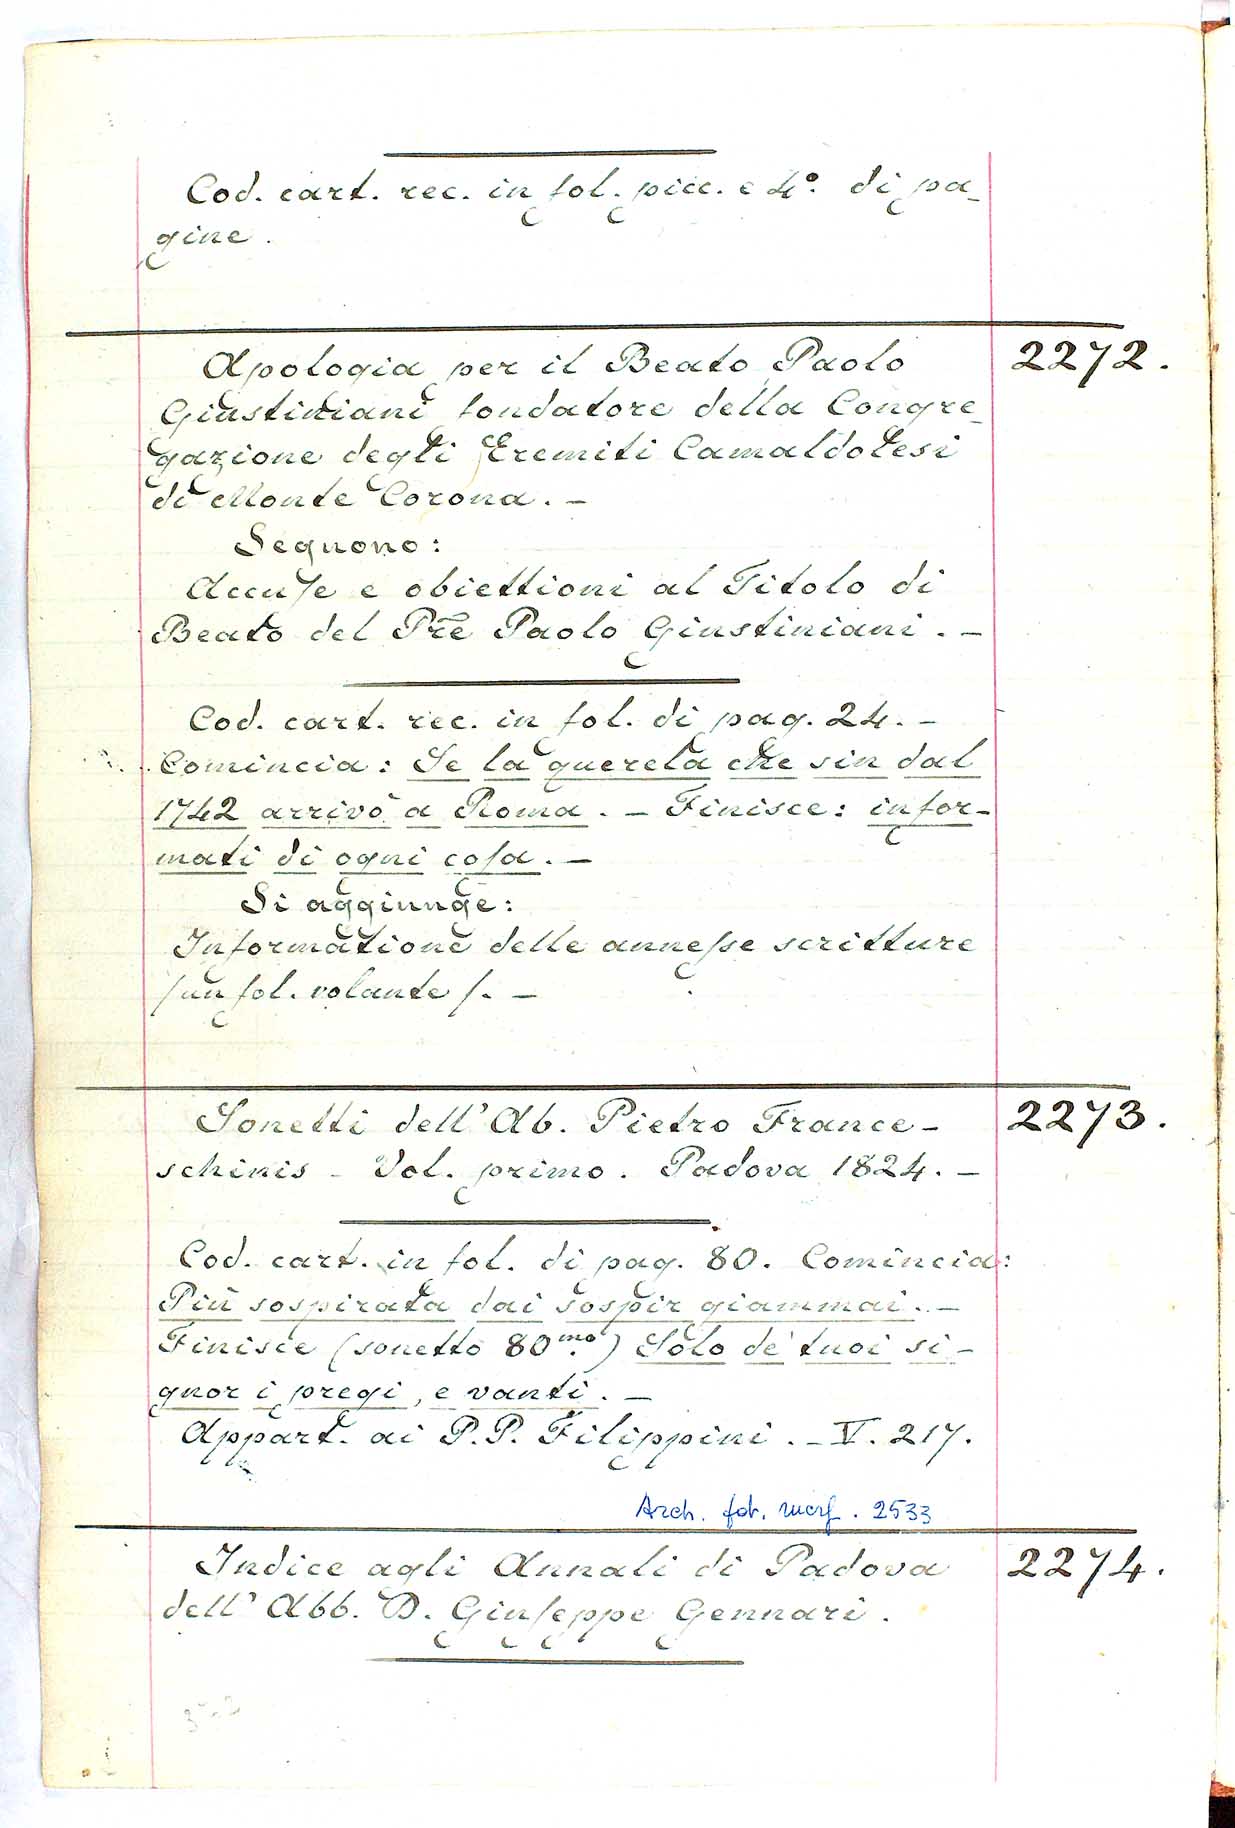 Cod. cart. rec. in fol. picc. e 4°. di pa-
gine.
Apologia per il Beato Paolo 2272.
Giustiniani fondatore della Congre-
gazione degli Eremiti Camaldolesi
di Monte Corona. -
Seguono:
Accuſe e obiettioni al Titolo di
Beato del Pr̃e Paolo Giustiniani. -
Cod. cart. rec. in fol. di pag. 24. -
Comincia: Se la querela che sin dal
1742 arrivò a Roma. - Finisce: infor-
mati di ogni coſa. -
Si aggiunge:
Informatione delle anneſse scritture
/un fol. volante/. -
Sonetti dell' Ab. Pietro France- 2273.
schinis - Vol. primo. Padova 1824. -
Cod. cart. in fol. di pag. 80. Comincia:
Più sospirata dai sospir giammai. -
Finisce (sonetto 80.mo) Solo de' tuoi si-
gnor i pregi, e vanti. -
Appart. ai P.P. Filippini. - V. 217.
Arch. fot. 2533
Indice agli Annali di Padova 2274.
dell' Abb. D. Giuſeppe Gennari.